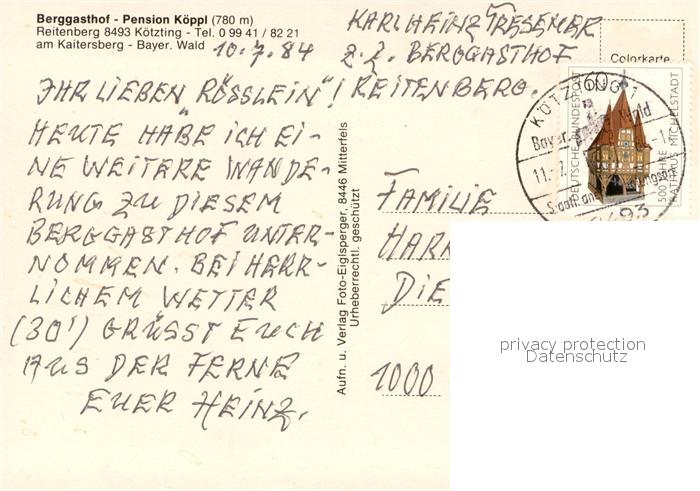 Berggasthof - Pension Köppl (780 m)
Reitenberg 8493 Kötzting - Tel. 0 99 41 / 82 21
am Kaitersberg - Bayer. Wald
10.7.84
KARLHEINZ TRESEMER
z. Z. BERGGASTHOF
REITENBERG.
IHR LIEBEN „RÖSSLEIN"!
HEUTE HABE ICH EI-
NE WEITERE WANDE-
RUNG ZU DIESEM
BERGGASTHOF UNTER-
NOMMEN. BEI HERR-
LICHEM WETTER
(30°) GRÜSST EUCH
AUS DER FERNE
EUER HEINZ.
Aufn. u. Verlag Foto-Eiglsperger, 8446 Mitterfels
Urheberrechtl. geschützt
Colorkarte
60
DEUTSCHE BUNDESPOST
500 JAHRE
RATHAUS MICHELSTADT
KÖTZTING 1
Bayer. Wald
11.-7.
8493
FAMILIE
HAR
DIE
1000
privacy protection
Datenschutz